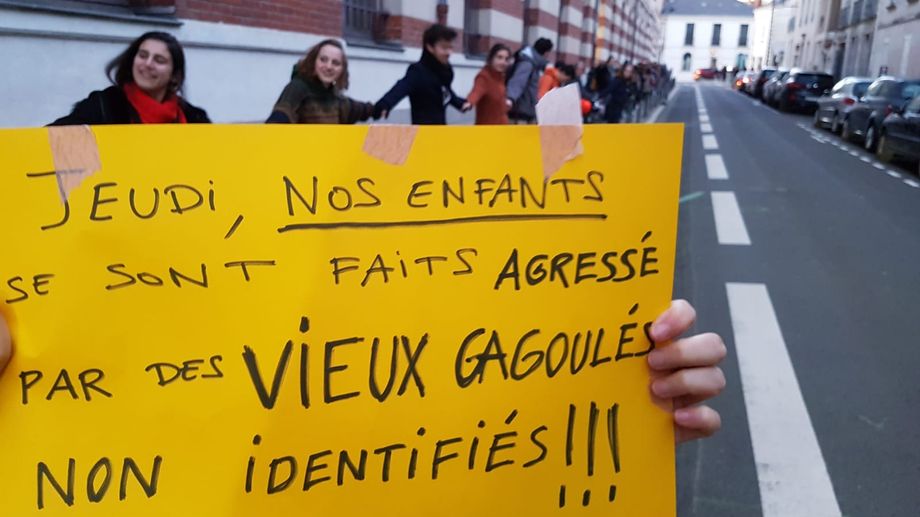 JEUDI, NOS ENFANTS
SE SONT FAITS AGRESSÉ
PAR DES VIEUX CAGOULÉS
NON IDENTIFIÉS!!!